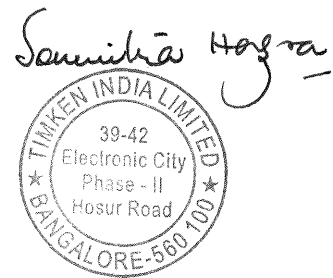 Soumitra Hazra
TIMKEN INDIA LIMITED
39-42
Electronic City
Phase - II
Hosur Road
★ BANGALORE-560 100 ★